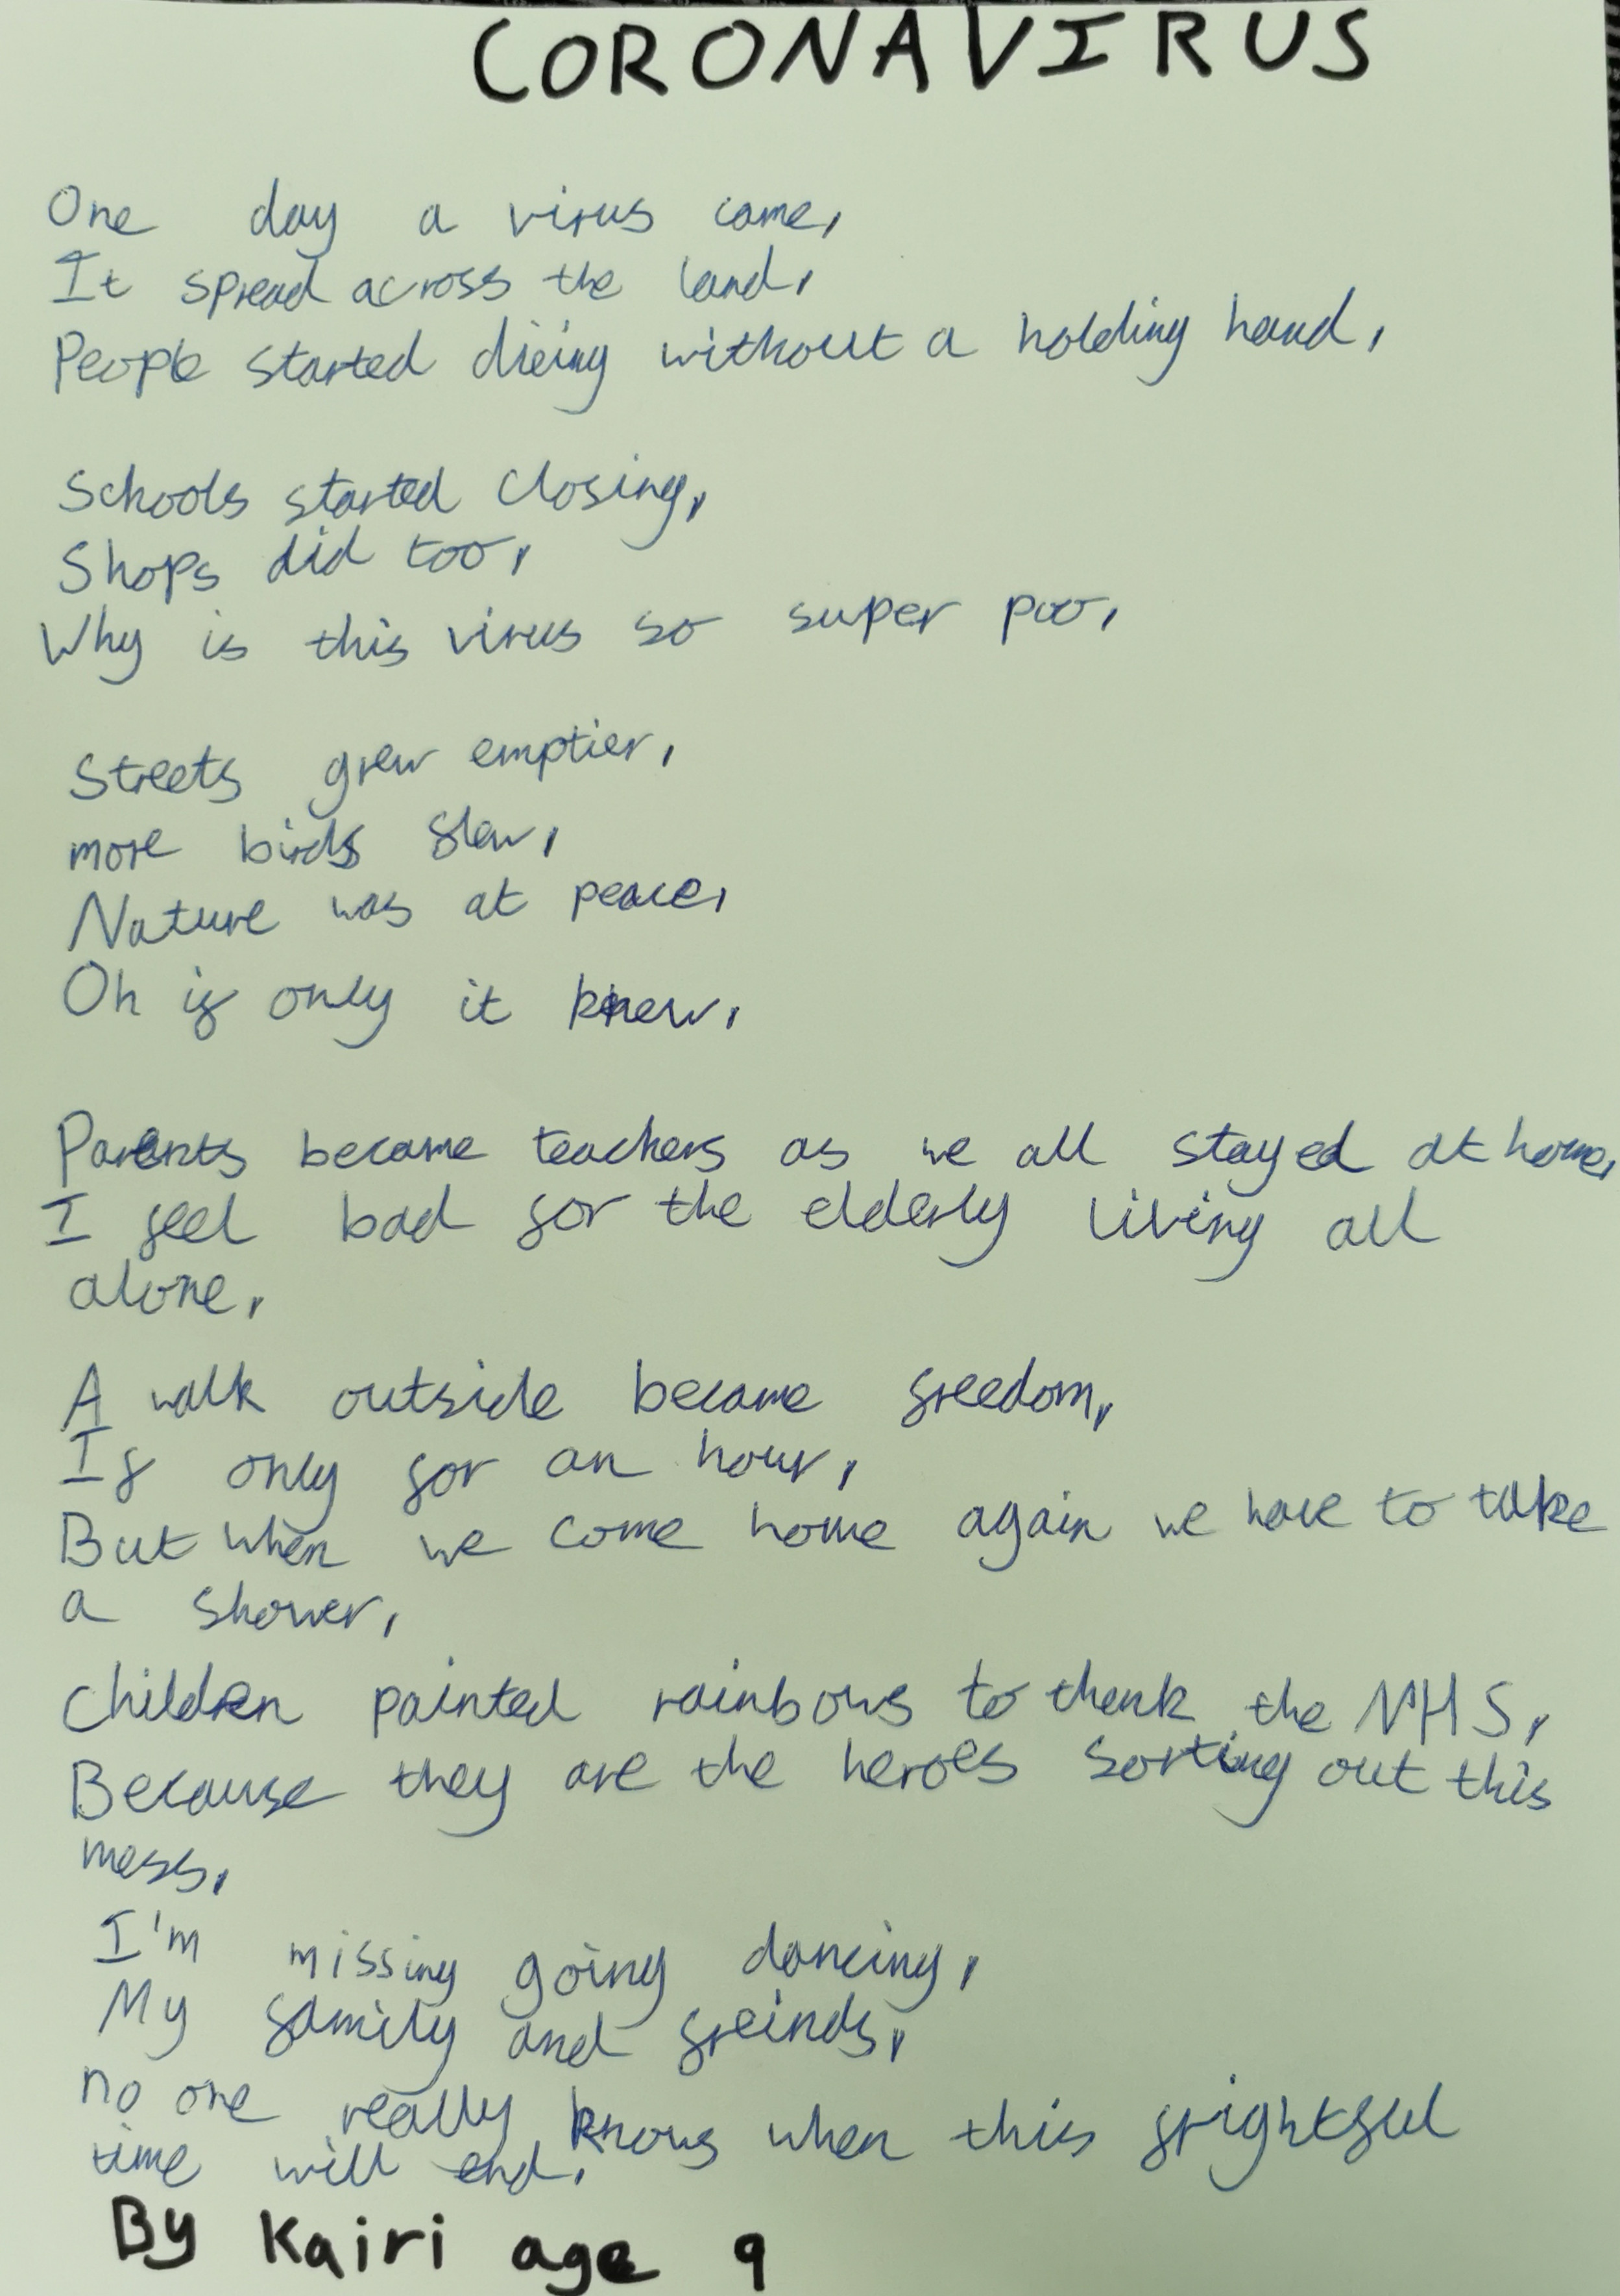 CORONAVIRUS
One day a virus came,
It spread across the land,
People started dieing without a holding hand,
Schools started closing,
Shops did too,
Why is this virus so super poo,
Streets grew emptier,
more birds flew,
Nature was at peace,
Oh if only it knew,
Parents became teachers as we all stayed at home,
I feel bad for the elderly living all
alone,
A walk outside became freedom,
If only for an hour,
But when we come home again we have to take
a shower,
Children painted rainbows to thank the NHS,
Because they are the heroes sorting out this
mess,
I'm missing going dancing,
My family and freinds,
no one really knows when this frightful
time will end.
By Kairi age 9